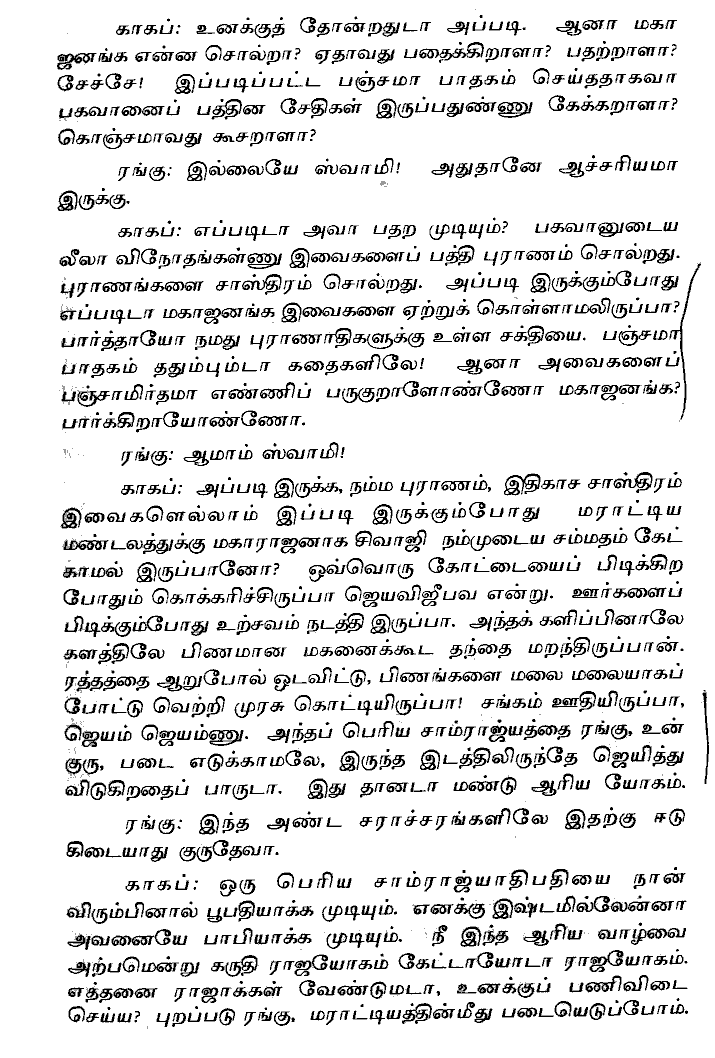 காகப்: உனக்குத் தோன்றதுடா அப்படி. ஆனா மகா
ஜனங்க என்ன சொல்றா? ஏதாவது பதைக்கிறாளா? பதற்றாளா?
சேச்சே! இப்படிப்பட்ட பஞ்சமா பாதகம் செய்ததாகவா
பகவானைப் பத்தின சேதிகள் இருப்பதுண்ணு கேக்கறாளா?
கொஞ்சமாவது கூசறாளா?
ரங்கு: இல்லையே ஸ்வாமி! அதுதானே ஆச்சரியமா
இருக்கு.
காகப்: எப்படிடா அவா பதற முடியும்? பகவானுடைய
லீலா விநோதங்கள்ணு இவைகளைப் பத்தி புராணம் சொல்றது.
புராணங்களை சாஸ்திரம் சொல்றது. அப்படி இருக்கும்போது
எப்படிடா மகாஜனங்க இவைகளை ஏற்றுக் கொள்ளாமலிருப்பா?
பார்த்தாயோ நமது புராணாதிகளுக்கு உள்ள சக்தியை. பஞ்சமா
பாதகம் ததும்பும்டா கதைகளிலே! ஆனா அவைகளைப்
பஞ்சாமிர்தமா எண்ணிப் பருகுறாளோண்ணோ மகாஜனங்க?
பார்க்கிறாயோண்ணோ.
ரங்கு: ஆமாம் ஸ்வாமி!
காகப்: அப்படி இருக்க, நம்ம புராணம், இதிகாச சாஸ்திரம்
இவைகளெல்லாம் இப்படி இருக்கும்போது மராட்டிய
மண்டலத்துக்கு மகாராஜனாக சிவாஜி நம்முடைய சம்மதம் கேட்
காமல் இருப்பானோ? ஒவ்வொரு கோட்டையைப் பிடிக்கிற
போதும் கொக்கரிச்சிருப்பா ஜெயவிஜீபவ என்று. ஊர்களைப்
பிடிக்கும்போது உற்சவம் நடத்தி இருப்பா. அந்தக் களிப்பினாலே
களத்திலே பிணமான மகனைக்கூட தந்தை மறந்திருப்பான்.
ரத்தத்தை ஆறுபோல் ஓடவிட்டு, பிணங்களை மலை மலையாகப்
போட்டு வெற்றி முரசு கொட்டியிருப்பா! சங்கம் ஊதியிருப்பா,
ஜெயம் ஜெயம்ணு. அந்தப் பெரிய சாம்ராஜ்யத்தை ரங்கு, உன்
குரு, படை எடுக்காமலே, இருந்த இடத்திலிருந்தே ஜெயித்து
விடுகிறதைப் பாருடா. இது தானடா மண்டு ஆரிய யோகம்.
ரங்கு: இந்த அண்ட சராச்சரங்களிலே இதற்கு ஈடு
கிடையாது குருதேவா.
காகப்: ஒரு பெரிய சாம்ராஜ்யாதிபதியை நான்
விரும்பினால் பூபதியாக்க முடியும். எனக்கு இஷ்டமில்லேன்னா
அவனையே பாபியாக்க முடியும். நீ இந்த ஆரிய வாழ்வை
அற்பமென்று கருதி ராஜயோகம் கேட்டாயோடா ராஜயோகம்.
எத்தனை ராஜாக்கள் வேண்டுமடா, உனக்குப் பணிவிடை
செய்ய? புறப்படு ரங்கு, மராட்டியத்தின்மீது படையெடுப்போம்.